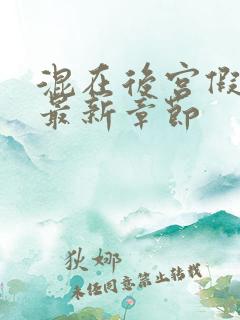 混在後宮假
最新章節
狄娜
未经同意禁止转载